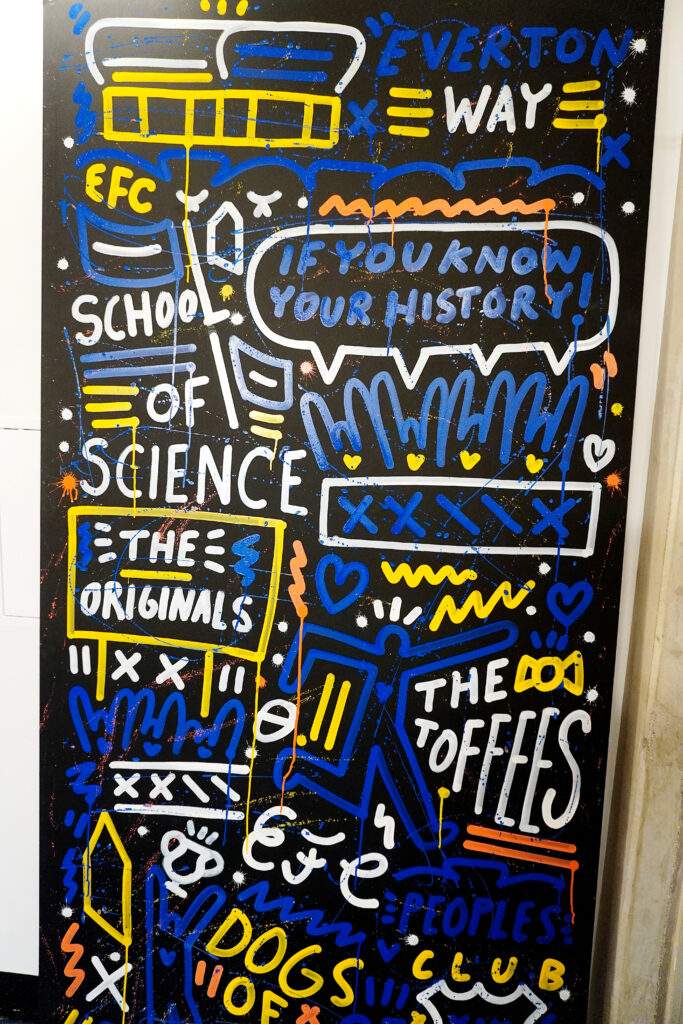 EVERTON
WAY
EFC
IF YOU KNOW
YOUR HISTORY!
SCHOOL
OF
SCIENCE
THE
ORIGINALS
THE
TOFFEES
EFC
PEOPLES
CLUB
DOGS
OF